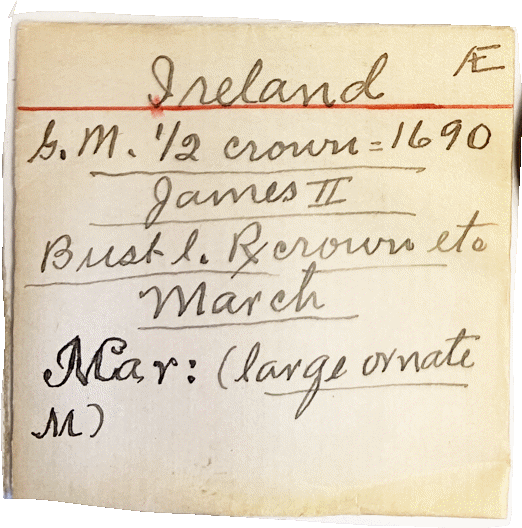 Ireland Æ
G. M. 1/2 crown = 1690
James II
Bust l. ℞ crown etc
March
Mar: (large ornate
M)